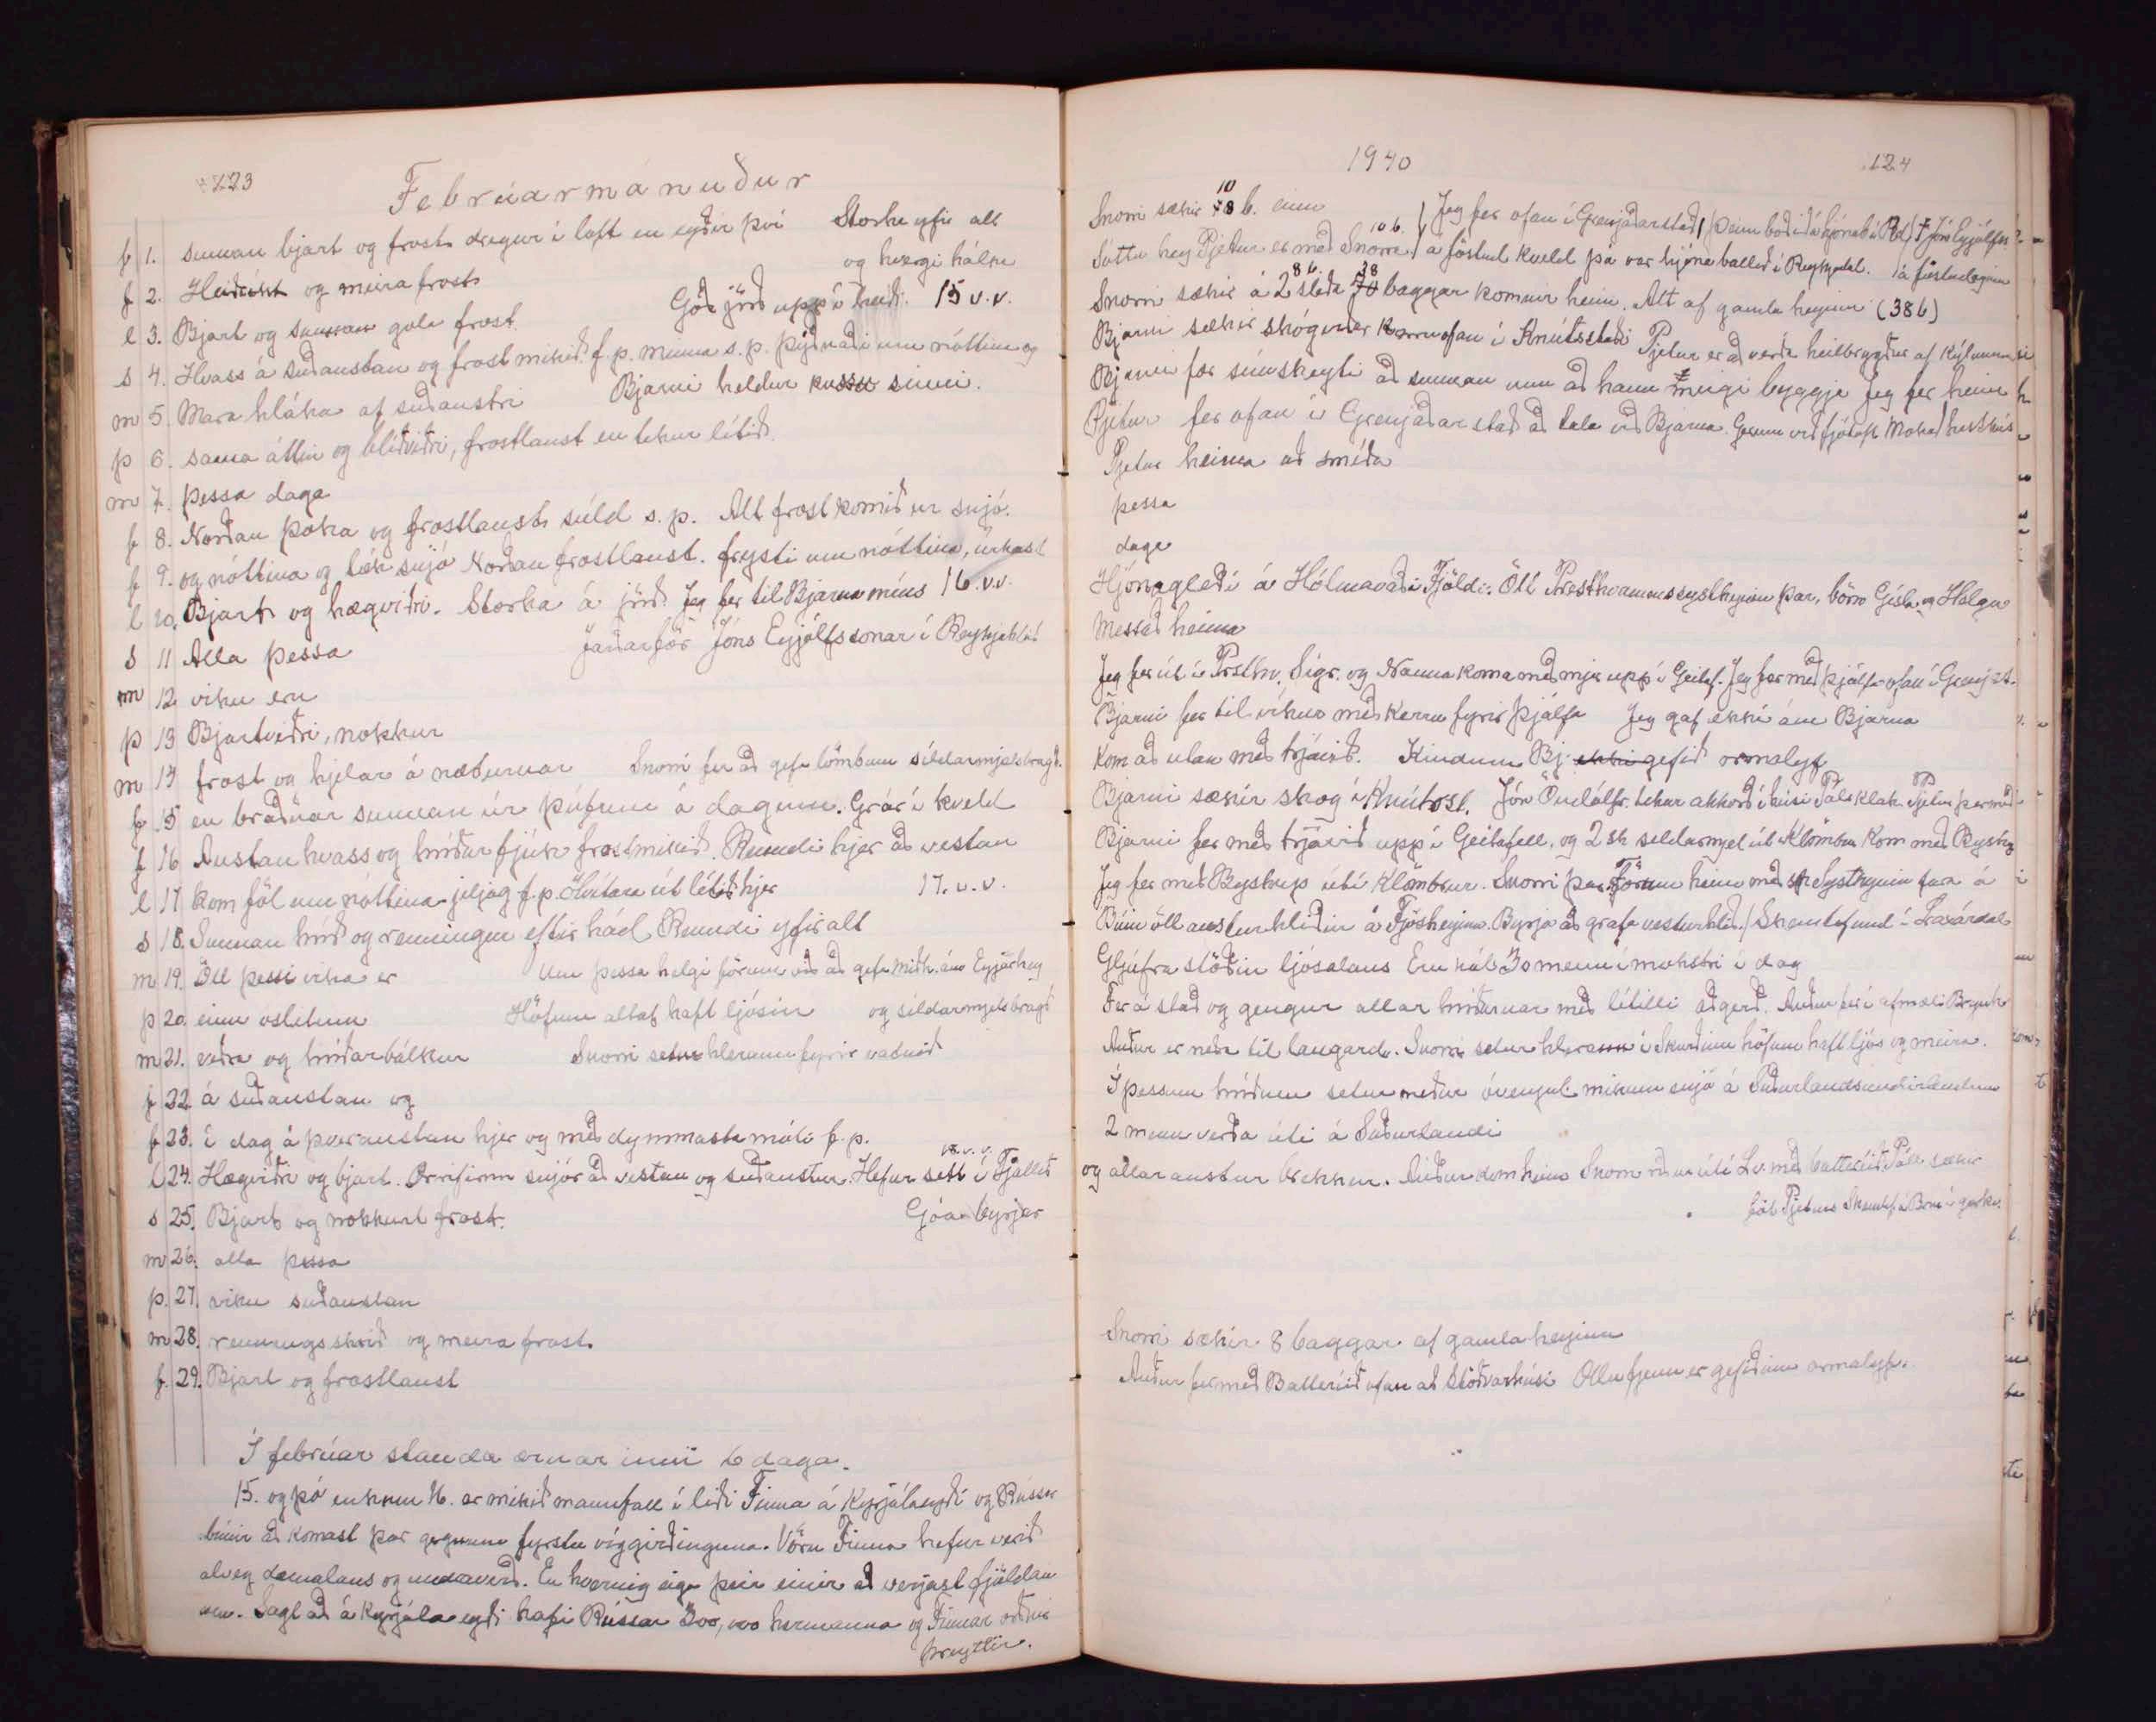 123
Febrúarmánuður
f 1. sunnan bjart og frost dregur í loft en eyðir því Storka yfir alt
og hvergi hálka
f 2. Heiðríkt og meira frost
l 3. Bjart og sunnan gola frost Góð jörð upp í heiði. 15 v.v.
s 4. Hvass á suðaustan og frost mikið f.p. minna s.p. þýðnaði um nóttina og
m 5. Mara hláka af suðaustri Bjarni heldur kussu sinni.
þ 6. sama áttin og blíðviðri, frostlaust en tekur lítið
m 7. þessa daga
f 8. Norðan þoka og frostlaust súld s.p. Alt frost komið úr snjó.
f 9. og nóttina og tók snjó Norðan frostlaust. frysti um nóttina, úrkast
l 10. Bjart og hægviðri. Storka á jörð. Jeg fer til Bjarna míns 16. v.v.
s 11 Alla þessa Jarðarför Jóns Eyjólfssonar í Reykjahlíð
m 12 viku er
þ 13 Bjartviðri, nokkur
m 14 frost og hjelar á næturnar Snorri fer að gefa lömbum síldarmjelsbragð.
f 15 en bráðnar sunnan úr þúfum á daginn. Grár í kveld
f 16 Austan hvass og hríðar fjúk frostmikið. Rumdi hjer að vestan
l 17 kom föl um nóttina jeljag f.p. Hvítara út lítið hjer 17. v.v.
s 18. Sunnan hríð og renningur eftir hád Rumdi yfir alt
m 19. Öll þessi vika er Um þessa helgi förum við að gefa Miðh. ám Eyjarhey
þ 20 einn óslitinn Höfum altaf haft ljósin og síldarmjelsbragð
m 21. veðra og hríðarbálkur Snorri setur hlerann fyrir vatnið
f 22 á suðaustan og
f 23. í dag á þveraustan hjer og með dymmasta móti f.p.
l 24. Hægviðri og bjart. Örrifinn snjór að vestan og suðaustur. Hefur sett í Fjallið 18. v.v.
s 25. Bjart og nokkurt frost. Góa byrjar
m 26. alla þessa
þ. 27. viku suðaustan
m 28. rennings skrið og meira frost.
f. 29. Bjart og frostlaust
Í febrúar standa ærnar inni 6 daga.
15. og þó einkum 16. er mikið mannfall í liði Finna á Kyrjálaeyði og Rússar
búnir að komast þar gegnum fyrstu víggirðinguna. Vörn Finna hefur verið
alveg dæmalaus og undraverð. En hvernig eiga þeir einir að verjast fjöldan
um. Sagt að á Kyrjála eyði hafi Rússar 300,000 hermanna og Finnar orðnir
þreyttir.
1940
124
Snorri sækir 10 b. einn Jeg fer ofan í Grenjaðarstað / þeim boðið á hjónab í Rd / † Jón Eyjólfss
Sóttu hey Pjetur er með Snorra 10 b. / á föstud kveld þá var hjónaballið í Reykjadal. á föstudaginn
Snorri sækir á 2 sleða 8 b. 38 baggar komnir heim. Alt af gamla heyinu (38 b)
Bjarni sækir skógviðar kerru ofan í Knútsstaði Pjetur er að verða heilbrygður af kýlunum
Bjarni fær símskeyti að sunnan um að hann megi byggja Jeg fer heim
Pjetur fer ofan í Grenjaðarstað að tala við Bjarna. Gerum við fjósafl Moka hesthús
Pjetur heima að smíða
þessa
daga
Hjónagleði á Hólmavaði Fjöldi. Öll Presthvammssystkynin þar, börn Gísla og Helgu
Messað heima
Jeg fer út í Presthv. Sigr. og Nanna koma með mjer upp í Geitaf. Jeg fer með Þjálfa ofan í Grenjast.
Bjarni fer til víkur með kerru fyrir Þjálfa Jeg gaf ekki ám Bjarna
Kom að utan með trjávið. Kindum Bj. gefið ormalyf
Bjarni sækir skog í Knútsst. Jón Öndólfs. tekur akkorð í húsi Páls klak Pjetur þar með
Bjarni fer með trjávið upp í Geitafell, og 2 sk síldarmjel út í Klömbur Kom með Bystrup
Jeg fer með Bystrup út í Klömbrur. Snorri þar. Förum heim með Systkynin fara á
Búin öll austurhliðin á Fjósheyinu. Byrja að grafa vesturhlið. / Skemtifund í Laxárdal
Gljúfra stöðin ljósalaus Eru hálf 30 menn í mokstri í dag
Fer á stað og gengur allar hríðarnar með lítilli aðgerð. Auður fer í afmæli
Auður er neðra til laugard. Snorri setur hlerann í Skurðinn höfum haft ljós og meira.
Í þessum hríðum setur niður óvenjul. mikinn snjó á Suðurlandsundirlendinu
2 menn verða úti á Suðurlandi
og allar austur brekkur. Auður kom heim Snorri út í Lv. með batteríið Páll sækir
bát Pjeturs
Snorri sækir 8 baggar af gamla heyinu
Auður fer með Batteríið ofan að Stöðvarhúsi Öllu fjenu er gefið inn ormalyf.